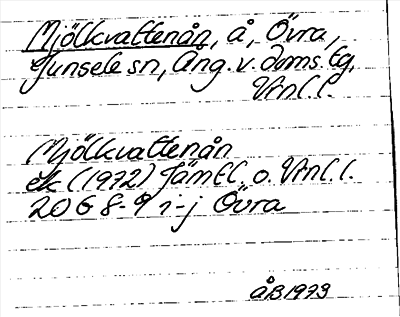 Mjölkvattenån, å, Övra,
Junsele sn, Ång. v. doms. tg,
Vtnl. l.
Mjölkvattenån
ek (1972) Jämtl. o. Vtnl. l.
20 G 8-9 i-j Övra
ÅB 1973